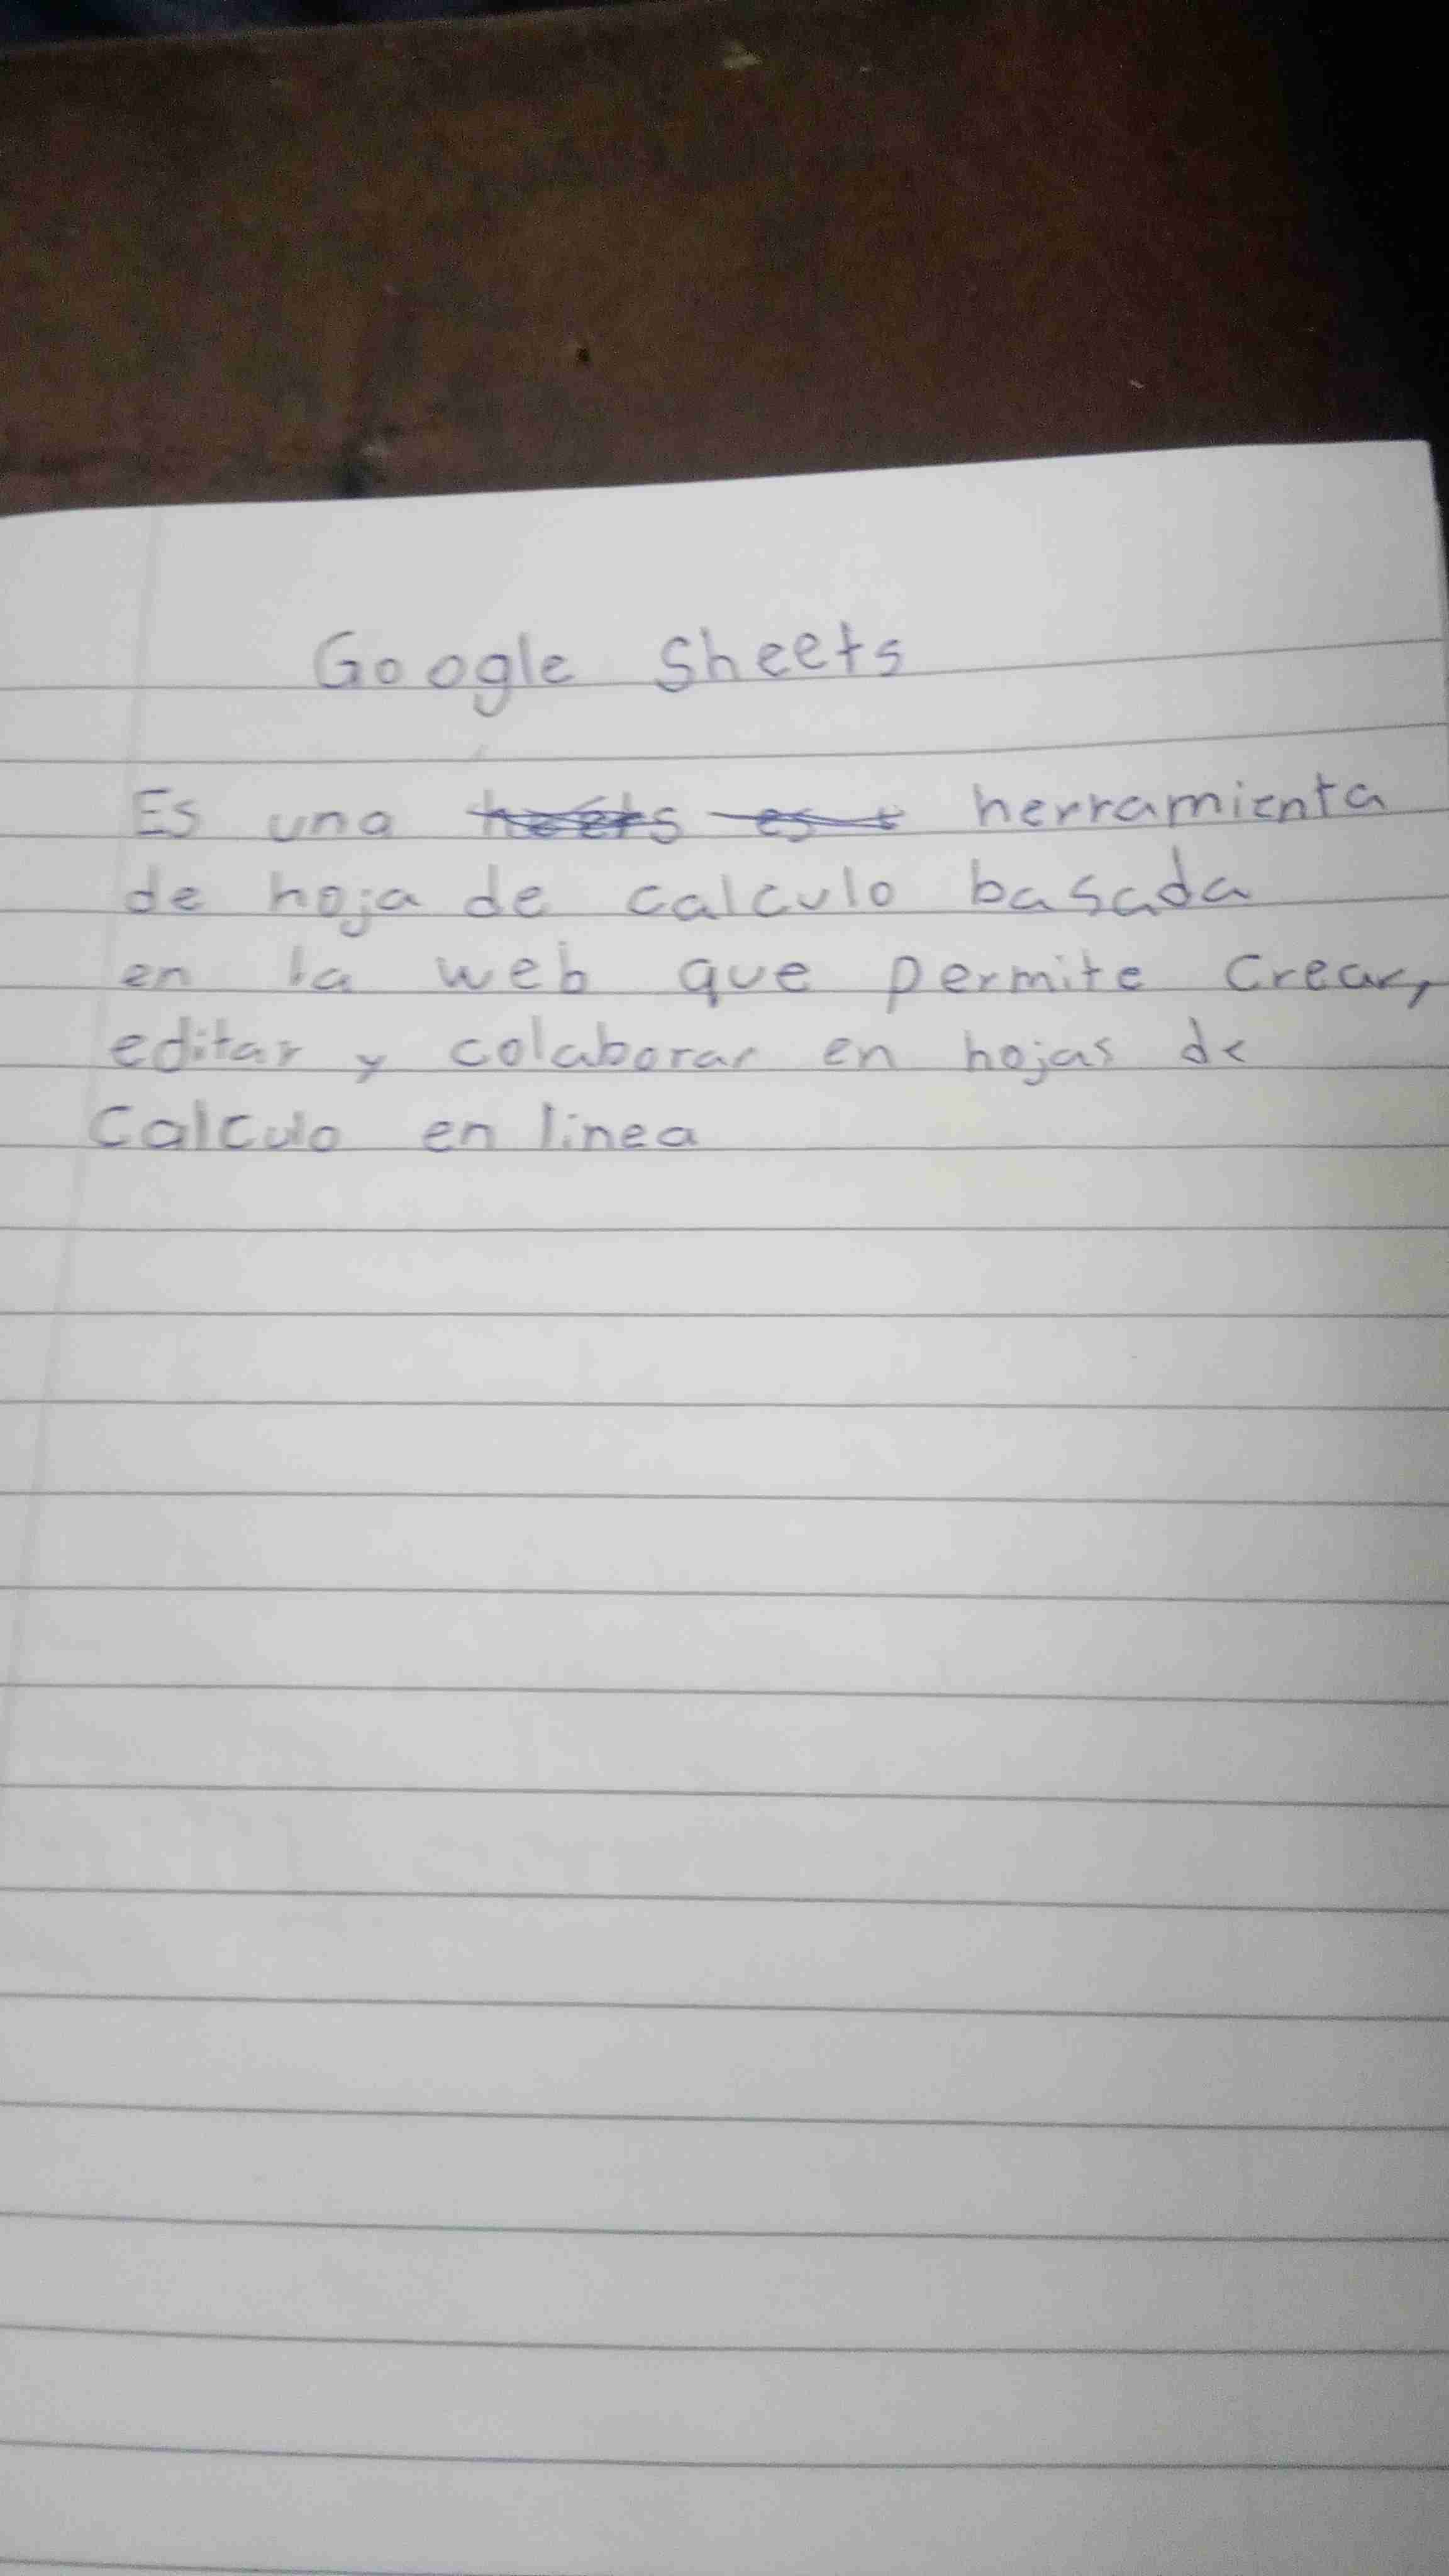 Google Sheets
Es una herramienta
de hoja de calculo basada
en la web que permite Crear,
editar y colaborar en hojas de
Calculo en linea